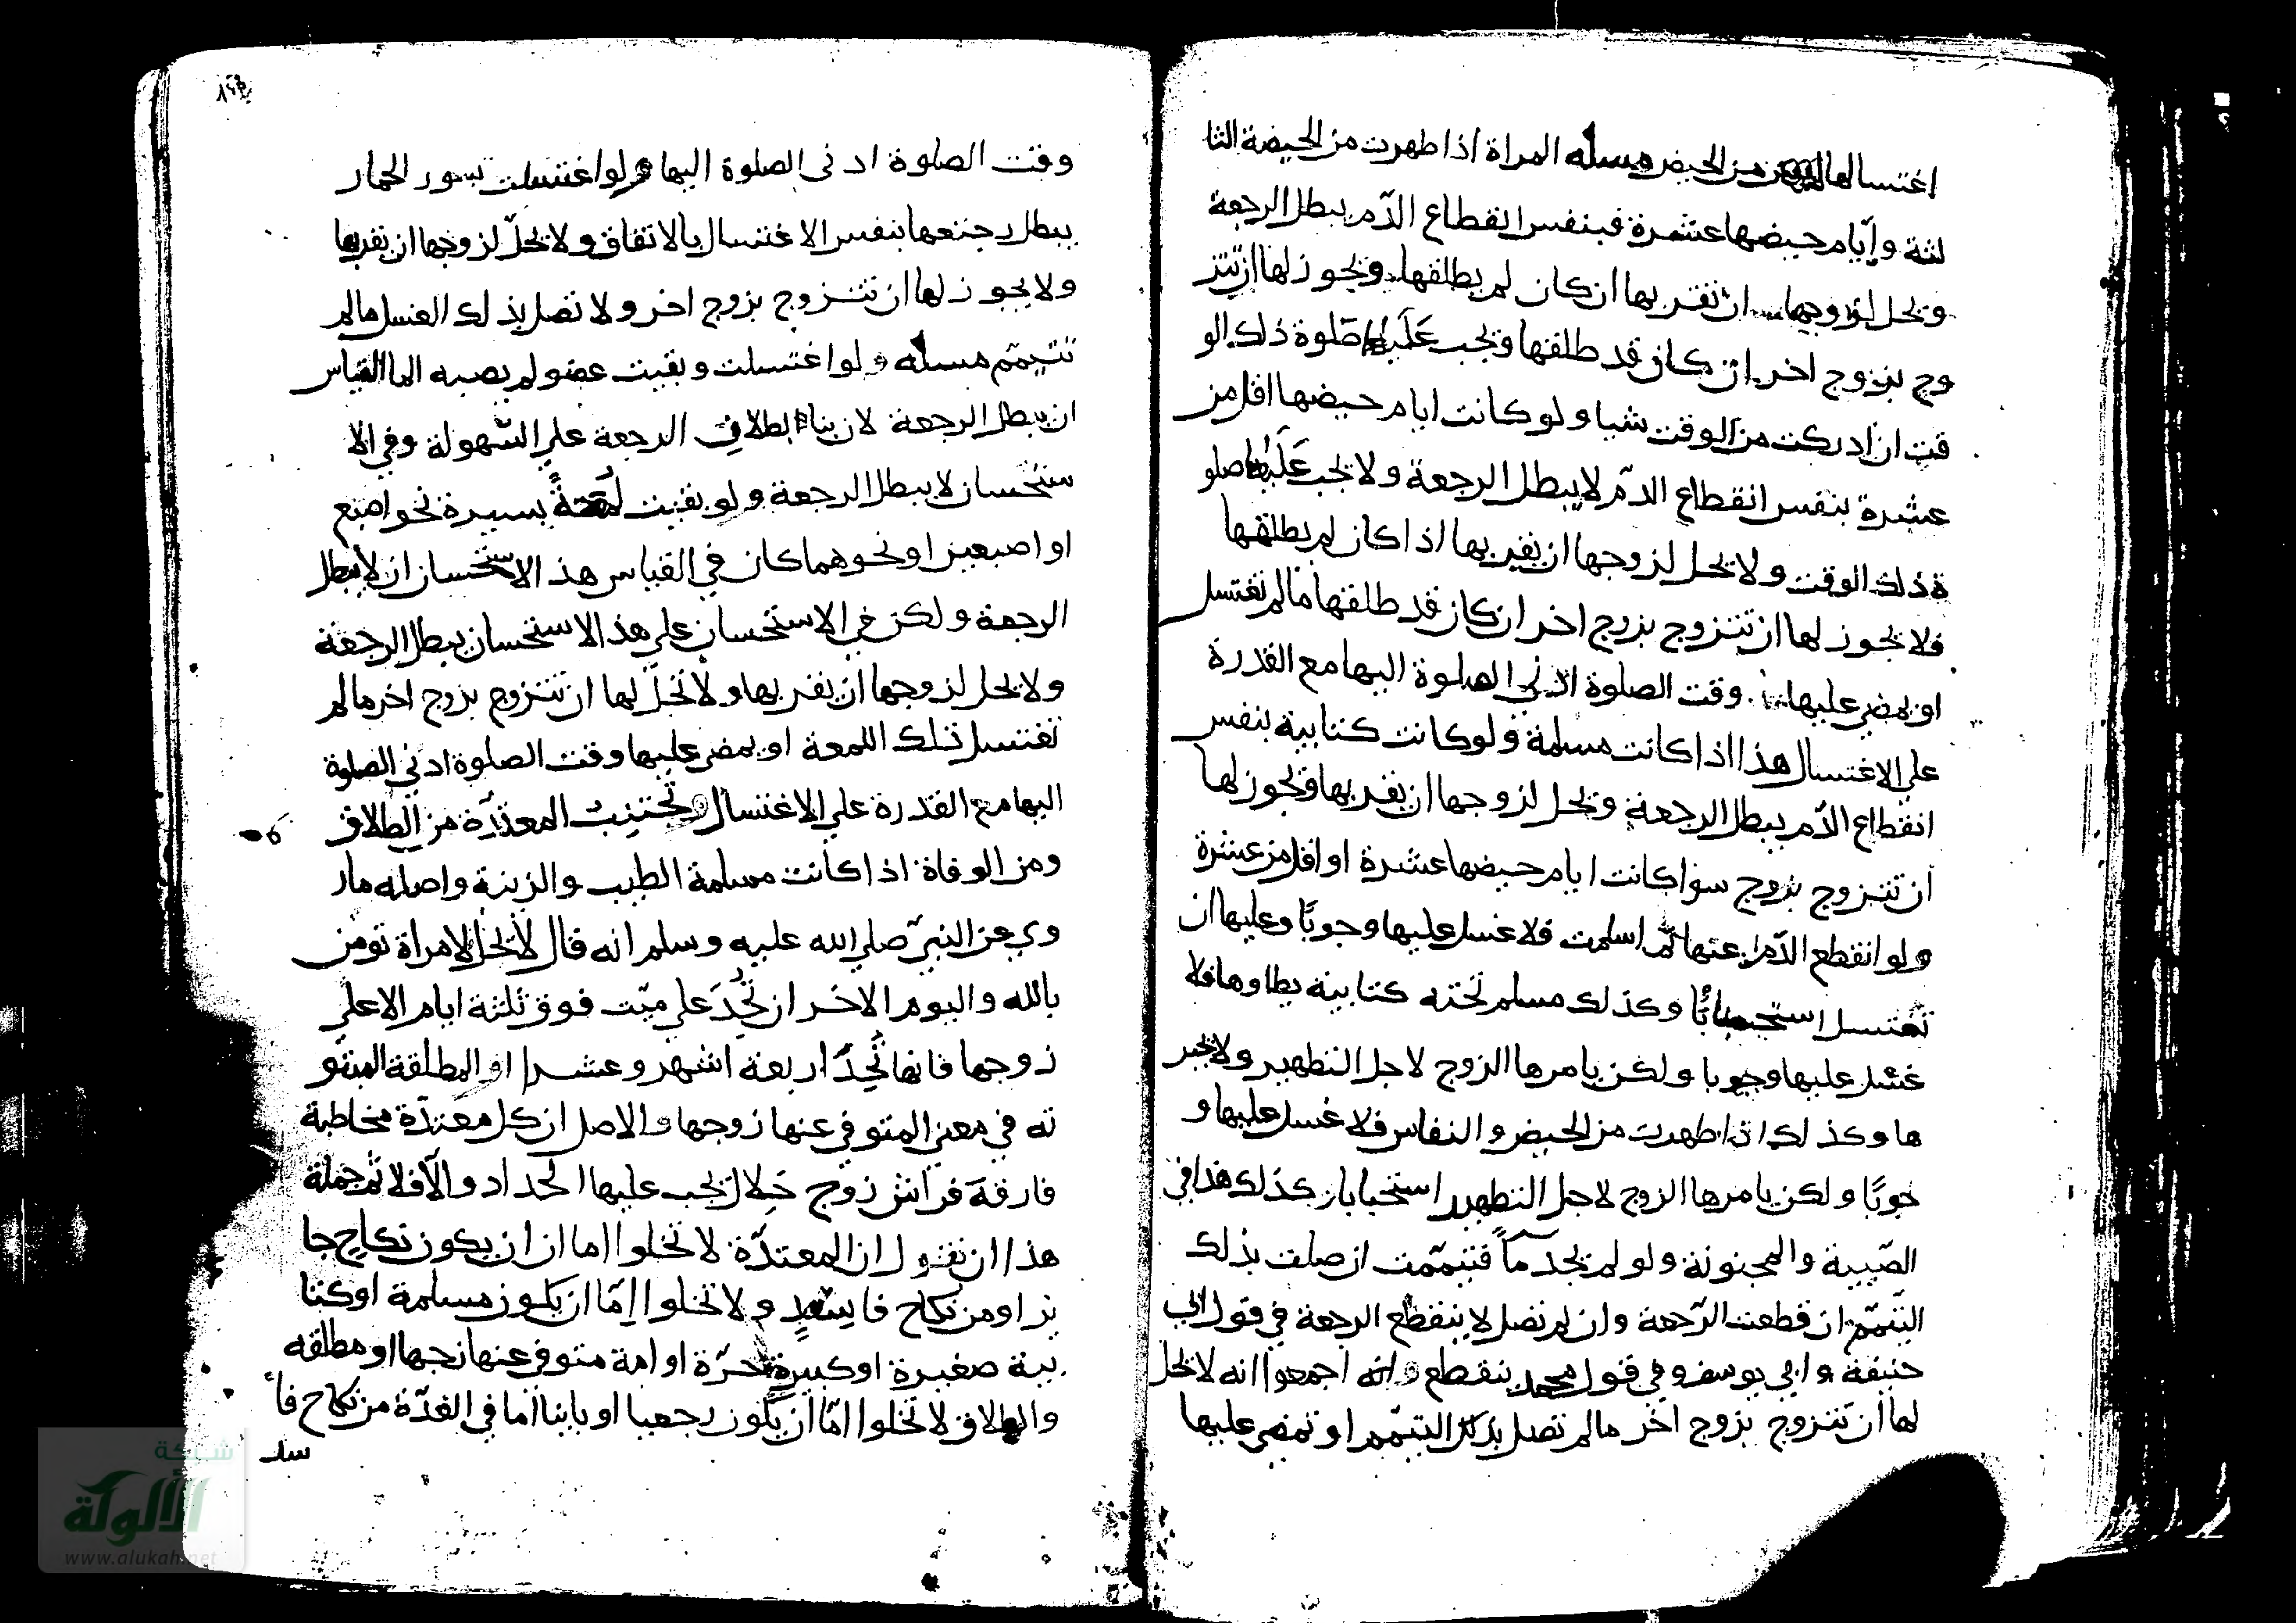 اغتسالها من الحيض مسله المراة اذا طهرت من الحيضة الثا
لثة وايام حيضها عشرة فبنفس انقطاع الدّم يبطل الرجعة
ويحل لزوجها ان تقربها ان كان لم يطلقها ويجوز لها ان تتز
وج بزوج اخر ان كان قد طلقها ويجب عَلَيها صَلوة ذلك الو
قت ان ادركت من الوقت شيا ولو كانت ايام حيضها اقل من
عشرة بنفس انقطاع الدّم لا يبطل الرجعة ولا يجب عَلَيها صلو
ة ذلك الوقت ولا يحل لزوجها ان يقربها اذا كان لم يطلقها
فلا يجوز لها ان تتزوج بزوج اخر ان كان قد طلقها مالم تغتسل
او يمضي عليها وقت الصلوة ادني الصلوة اليها مع القدرة
علي الاغتسال هذا اذا كانت مسلمة ولو كانت كتابية بنفس
انقطاع الدّم يبطل الرجعة ويحل لزوجها ان يقربها ويجوز لها
ان تتزوج بزوج سوا كانت ايام حيضها عشرة او اقل من عشرة
ولو انقطع الدّم عنها ثم اسلمت فلا غسل عليها وجوبًا وعليها ان
تغتسل استحبابًا وكذلك مسلم تحته كتابية يطاوها فلا
غسل عليها وجوبا ولكن يامرها الزوج لاجل التطهير ولا يجبر
ها وكذلك اذا طهرت من الحيض والنفاس فلا غسل عليها و
جوبًا ولكن يامرها الزوج لاجل التطهير استحبابا كذلك هذا في
الصّبية والمجنونة ولو لم يجد مآً فتيمّمت ان صلت بذلك
التيمّم انقطعت الرّجعة وان لم تصل لا ينقطع الرجعة في قول ابي
حنيفة وابي يوسف وفي قول محمد ينقطع وانه اجمعوا انه لا يحل
لها ان تتزوج بزوج اخر مالم تصل بذلك التيمّم او تمضي عليها
١٤٨
وقت الصلوة ادني الصلوة اليها ولو اغتسلت بسور الحمار
يبطل رجعتها بنفس الاغتسال بالاتفاق ولا يحلّ لزوجها ان يقربها
ولا يجوز لها ان تتزوج بزوج اخر ولا تصل بذلك الغسل مالم
تتيمّم مسله ولو اغتسلت وبقيت عضو لم يصبه الما القياس
ان يبطل الرجعة لان بناء بطلان الرجعة علي السّهولة وفي الا
ستحسان لا يبطل الرجعة ولو بقيت لمعةً يسيرة نحو اصبع
او اصبعين او نحوهما كان في القياس هذ الاستحسان ان لا يبطل
الرجعة ولكن في الاستحسان علي هذ الاستحسان يبطل الرجعة
ولا يحل لزوجها ان يقربها ولا تحلّ لها ان تتزوج بزوج اخر مالم
تغتسل تلك اللمعة او يمضي عليها وقت الصلوة ادني الصلوة
اليها مع القدرة علي الاغتسال وتجتنب المعتدّة من الطلاق
ومن الوفاة اذا كانت مسلمة الطيب والزينة واصله مار
وي عن النبيّ صلي الله عليه وسلم انه قال لا تحل لامراة تومن
بالله واليوم الاخر ان تحُدَ علي ميّت فوق ثلثة ايام الا علي
زوجها فانها تُحِدّ اربعة اشهر وعشرا او المطلقة المبتو
ته في معني المتوفي عنها زوجها والاصل ان كل معتدّة مخاطبة
فارقة فراش زوج حلال يجب عليها الحداد والّا فلا ثم جملة
هذا ان نقول ان المعتدّة لا تخلوا اما ان ان يكون نكاح جا
يز او من نكاح فاسد ولا تخلوا امّا ان يكون مسلمة او كتا
بية صغيرة او كبيرة حرّة او امة متوفي عنها زوجها او مطلقه
والطلاق لا تخلوا امّا ان يكون رجعيا او باينا اما في العدّة من نكاح فا
سد
شبكة
الألوكة
www.alukah.net